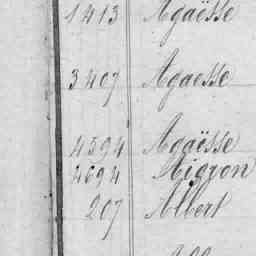 1413 Agaësse
3407 Agaesse
4394 Agaësse
4694 Aigron
207 Albert